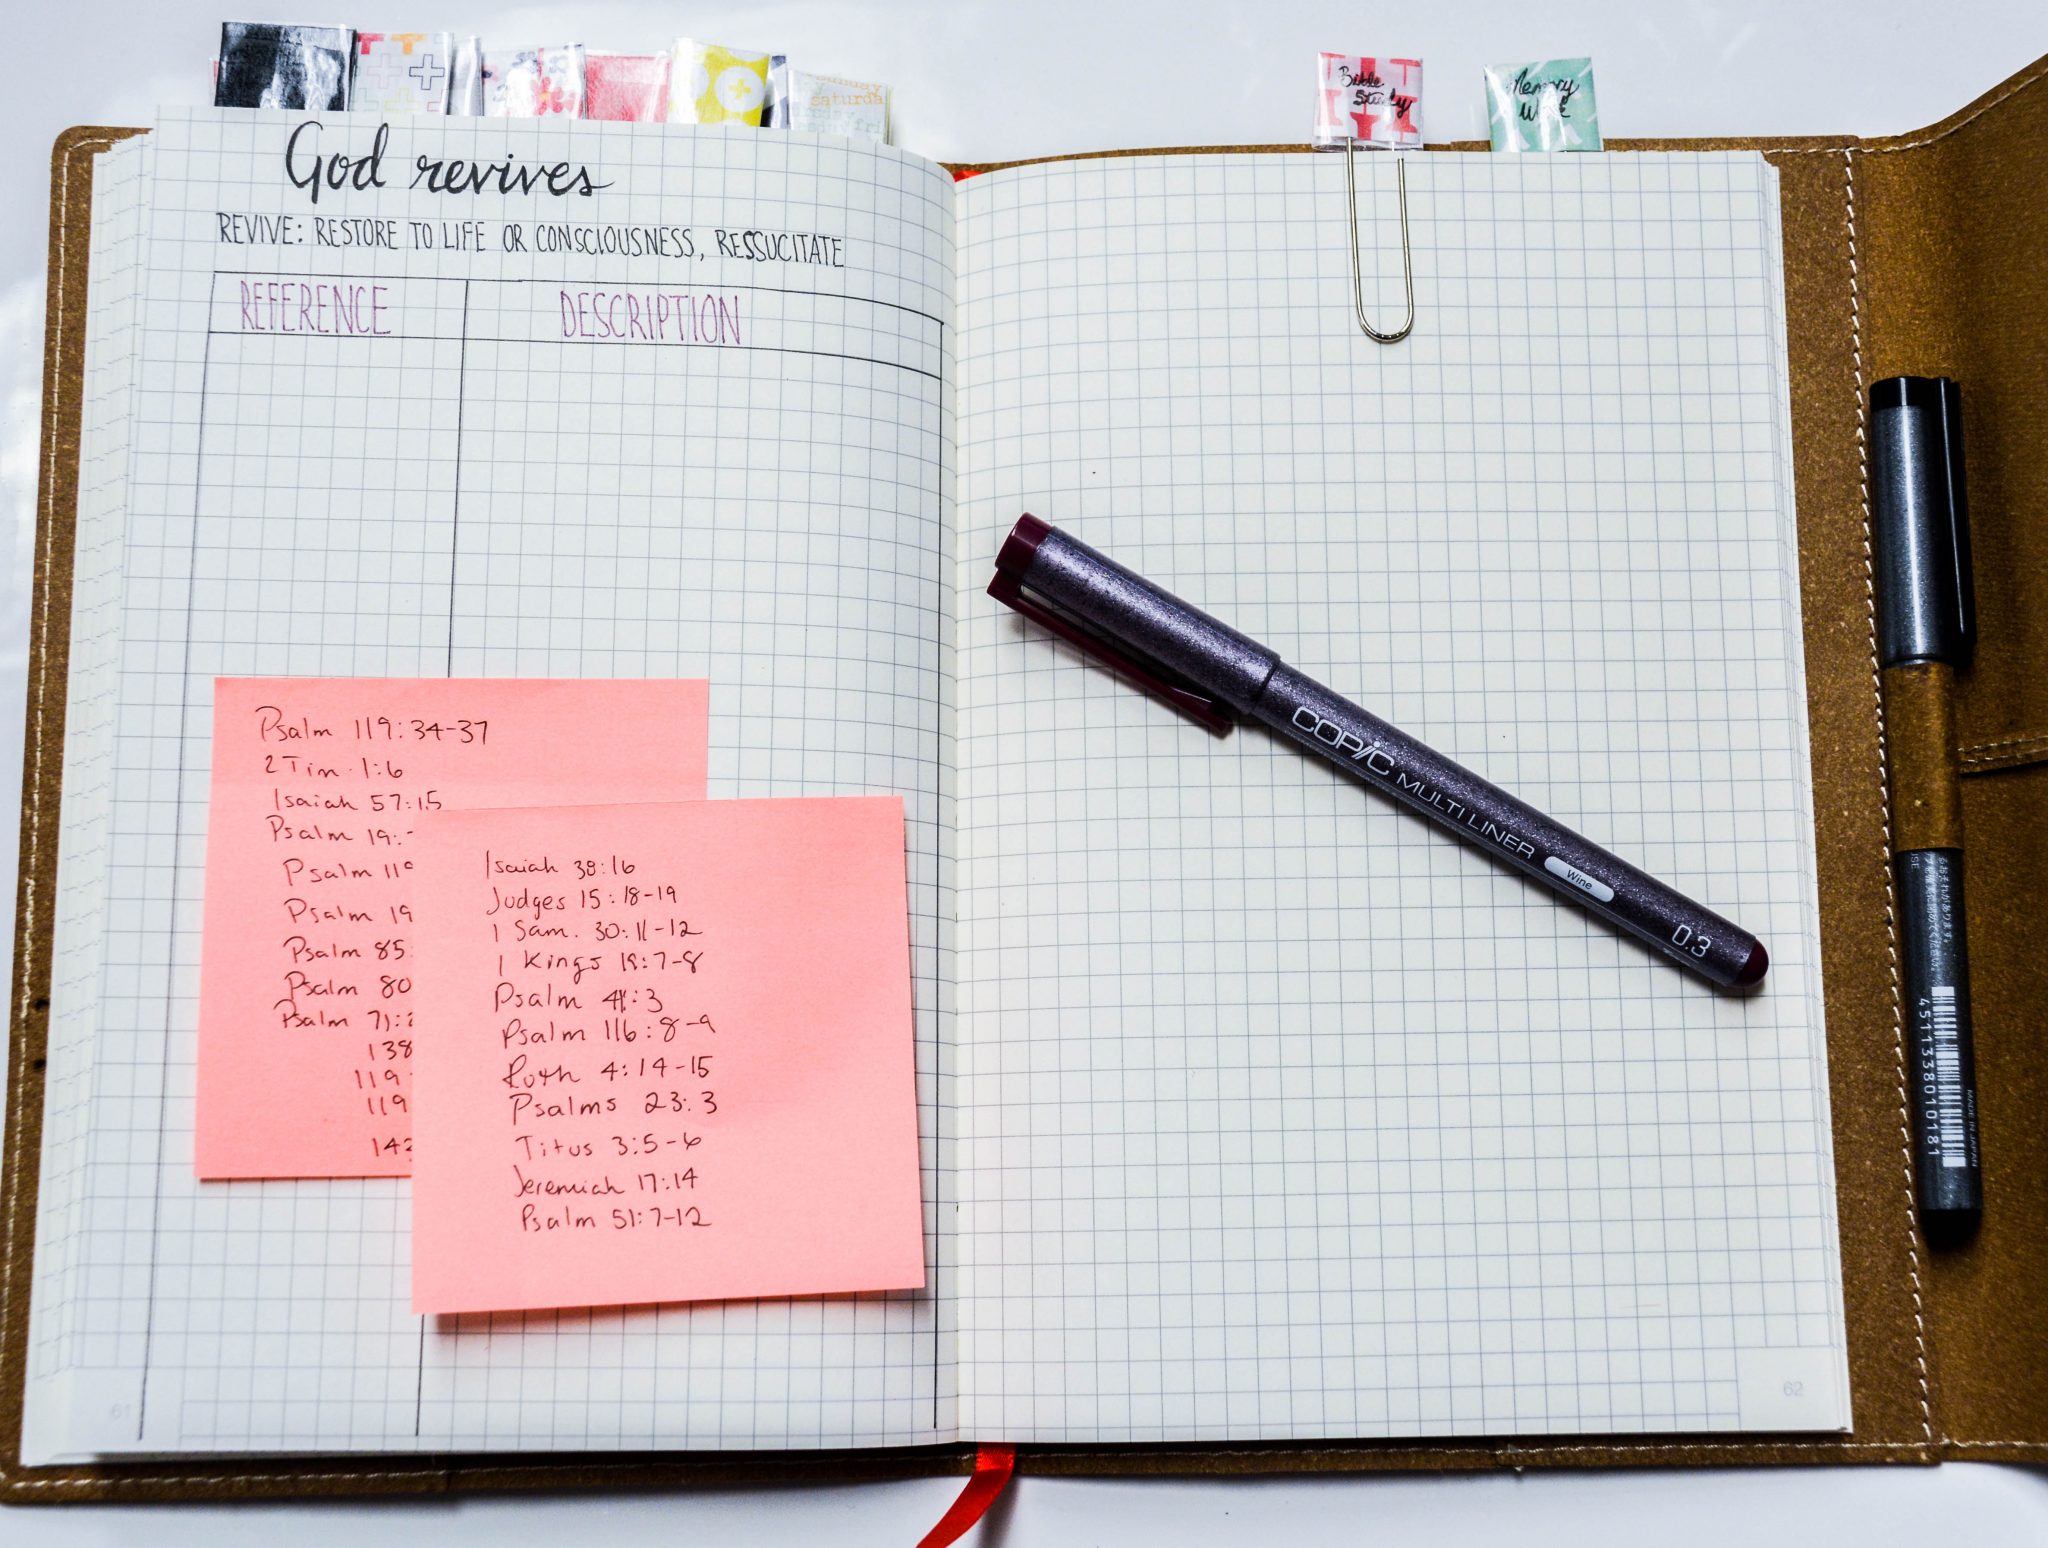 saturda
Bible
Study
Memory
God revives
REVIVE: RESTORE TO LIFE OR CONSCIOUSNESS, RESSUCITATE
REFERENCE DESCRIPTION
Psalm 119:34-37
2 Tim. 1:6
Isaiah 57:15
Psalm 19:-
Psalm 119
Psalm 19
Psalm 85:
Psalm 80
Psalm 71:2
138
119
119
142
Isaiah 38:16
Judges 15:18-19
1 Sam. 30:11-12
1 Kings 19:7-8
Psalm 41:3
Psalm 116:8-9
Ruth 4:14-15
Psalms 23:3
Titus 3:5-6
Jeremiah 17:14
Psalm 51:7-12
COPIC MULTI LINER Wine 0.3
4511338010181
MADE IN JAPAN
61
62